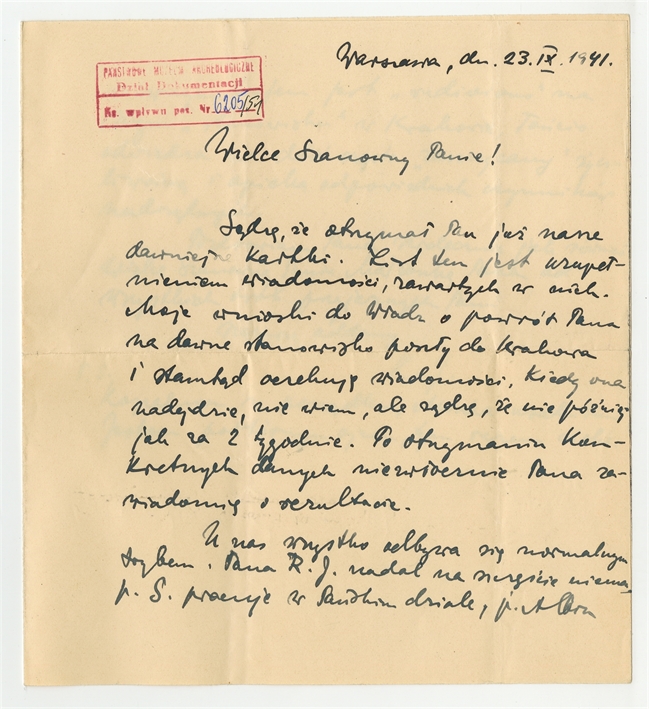 Warszawa, dn. 23.IX.1941.
PAŃSTWOWE MUZEUM ARCHEOLOGICZNE
Dział Dokumentacji
Ks. wpływu poz. Nr. 6205/59
Wielce Szanowny Panie!
Sądzę, że otrzymał Pan już nasze
dawniejsze kartki. List ten jest uzupeł-
nieniem wiadomości, zawartych w nich.
Moje wnioski do Władz o powrót Pana
na dawne stanowisko poszły do Krakowa
i stamtąd oczekuję wiadomości. Kiedy ona
nadejdzie, nie wiem, ale sądzę, że nie później
jak za 2 tygodnie. Po otrzymaniu kon-
kretnych danych niezwłocznie Pana za-
wiadomię o rezultacie.
U nas wszystko odbywa się normalnym
trybem. Pana R. J. nadal na szczęście niema,
p. S. pracuje w Pańskim dziale, p.